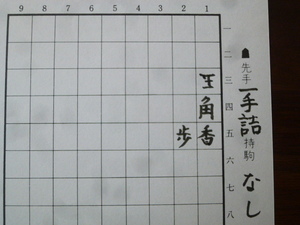 9 8 7 6 5 4 3 2 1
一
二
三
四
五
六
七
八
王
角
歩 香
☗先手 一手詰 持駒 なし